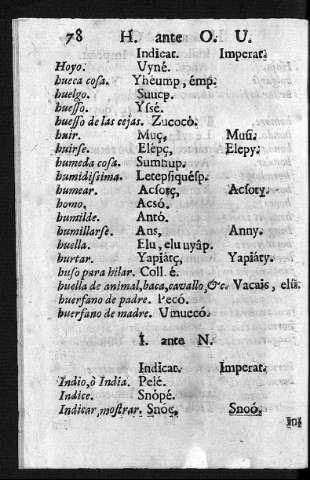 78 H. ante O. U.
Indicat. Imperat.
Hoyo. Uyné.
hueca cosa. Yhéump, émp.
huelgo. Suucp.
huesso. Yssé.
huesso de las cejas. Zucocó.
huir. Muç, Musí.
huirse. Elépç, Elepy.
humeda cosa. Sumnup.
humidissima. Letepsiquésp.
humear. Acsotç, Acsoty.
homo. Acsó.
humilde. Antò.
humillarse. Ans, Anny.
huella. Elu, elu uyâp.
hurtar. Yapiátç, Yapiáty.
huso para hilar. Coll é.
huella de animal, baca, cavallo, &c. Vacais, elû.
huerfano de padre. Pecó.
huerfano de madre. Umuecó.
I. ante N.
Indicat. Imperat.
Indio, ò India. Pelé.
Indice. Snòpé.
Indicar, mostrar. Snóç, Snoó.